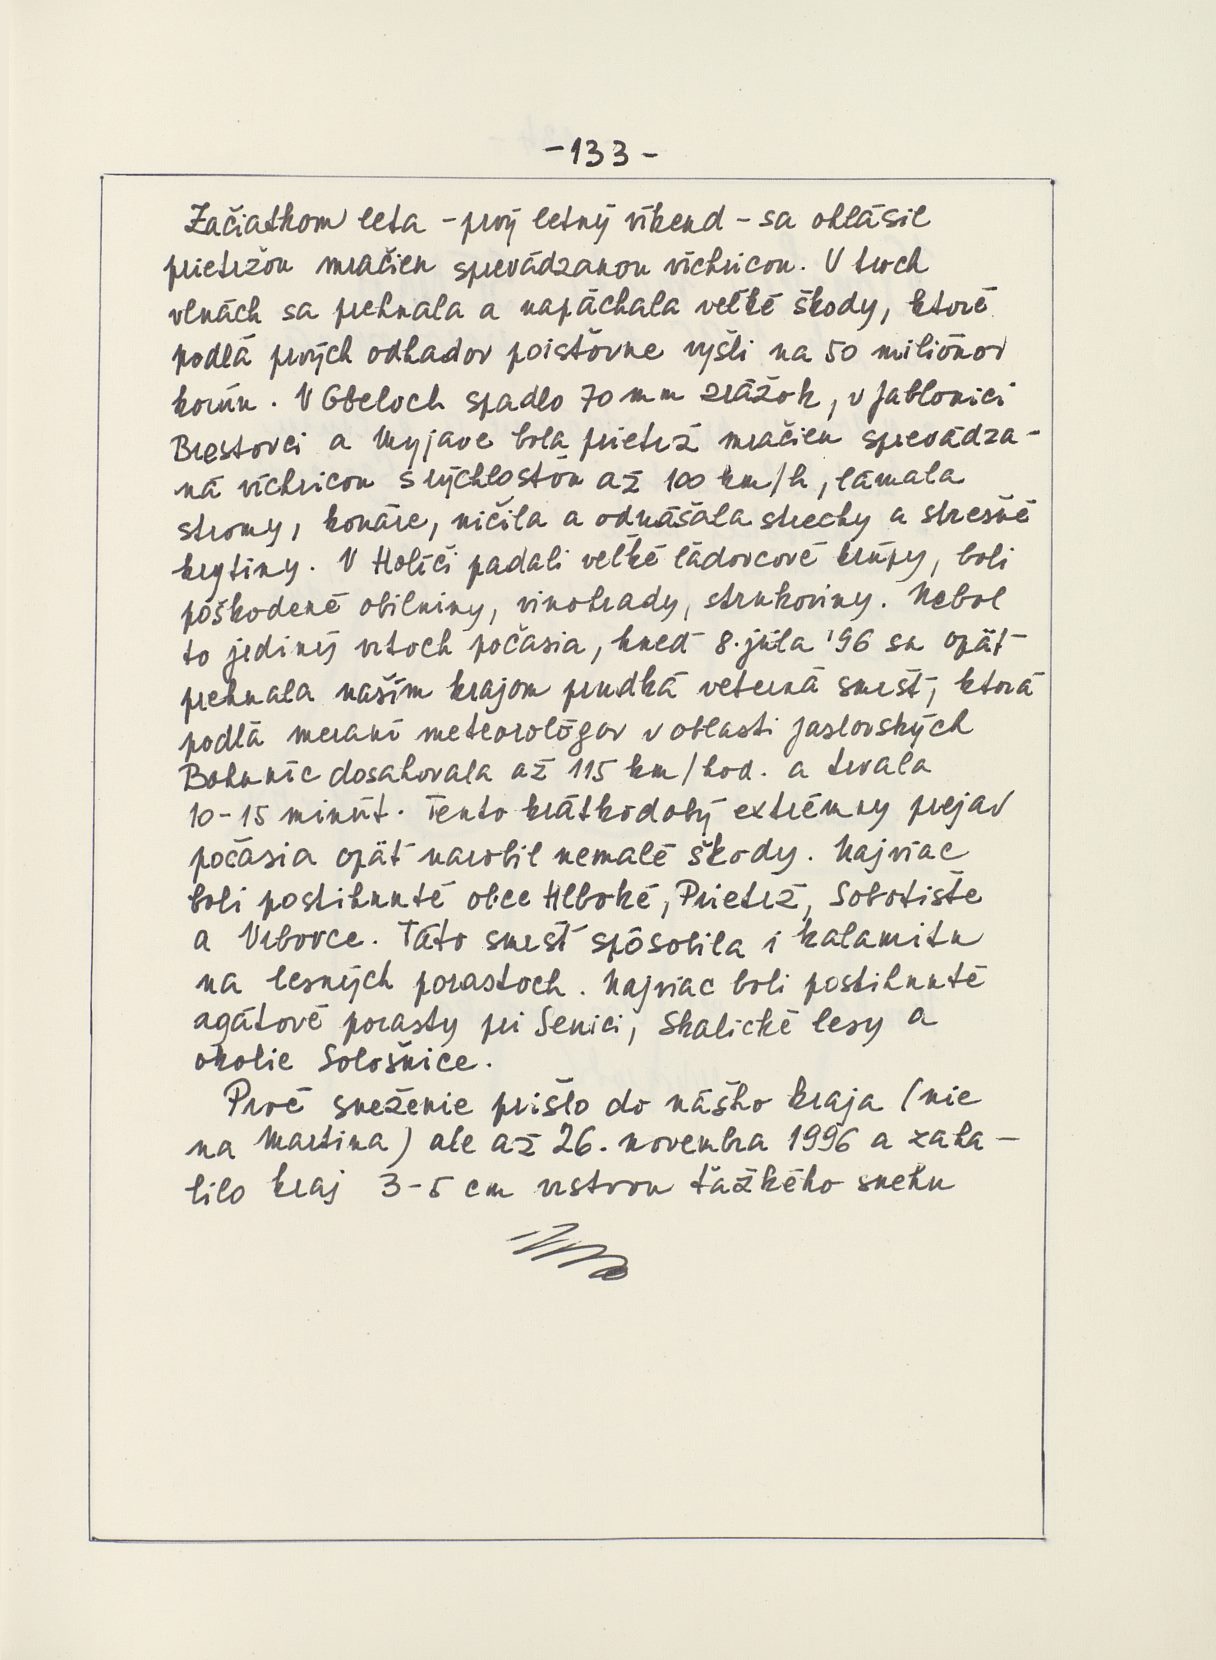 -133-
Začiatkom leta - prvý letný víkend - sa ohlásil
prietržou mračien sprevádzanou víchricou. V troch
vlnách sa prehnala a napáchala veľké škody, ktoré
podľa prvých odhadov poisťovne vyšli na 50 miliónov
korún. V Gbeloch spadlo 70 mm zrážok, v Jablonici
Brestovci a Myjave bola prietrž mračien sprevádza-
ná víchricou s rýchlosťou až 100 km/h, lámala
stromy, konáre, ničila a odnášala strechy a strešné
krytiny. V Holíči padali veľké ľadovcové krúpy, boli
poškodené obilniny, vinohrady, strukoviny. Nebol
to jediný vrtoch počasia, hneď 8. júla '96 sa opäť
prehnala naším krajom prudká veterná smršť, ktorá
podľa meraní meteorológov v oblasti Jaslovských
Bohuníc dosahovala až 115 km/hod. a trvala
10-15 minút. Tento krátkodobý extrémny prejav
počasia opäť narobil nemalé škody. Najviac
boli postihnuté obce Hlboké, Prietrž, Sobotište
a Vrbovce. Táto smršť spôsobila i kalamitu
na lesných porastoch. Najviac boli postihnuté
agátové porasty pri Senici, Skalické lesy a
okolie Sološnice.
Prvé sneženie prišlo do nášho kraja (nie
na Martina) ale až 26. novembra 1996 a zaha-
lilo kraj 3-5 cm vrstvou ťažkého snehu